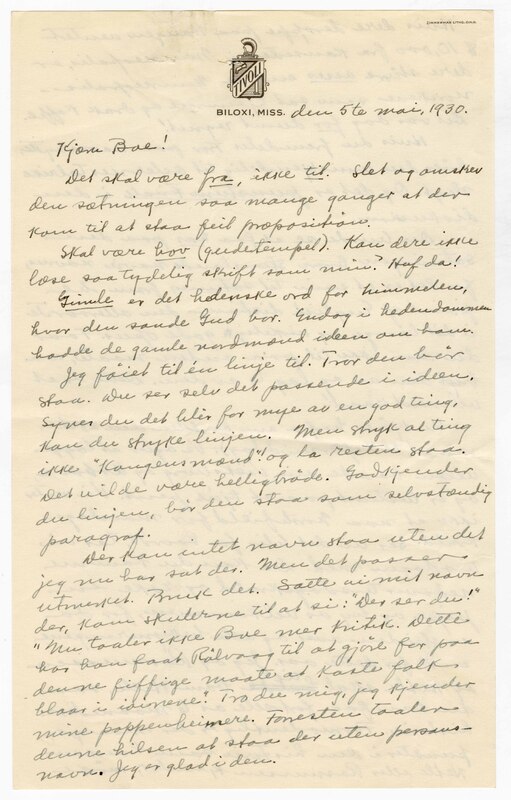 ZIMMERMAN LITHO. CO.
TIVOLI
BILOXI, MISS. den 5te mai, 1930.
Kjære Boe!
Det skal være fra, ikke til. Slet og omskrev
den sætningen saa mange ganger at der
kom til at staa feil præposition.
Skal være hov (gudetempel). Kan dere ikke
læse saa tydelig skrift som min? Huf da!
Gimle er det hedenske ord for himmelen,
hvor den sande Gud bor. Endog i hedendommen
hadde de gamle nordmænd ideen om ham.
Jeg føiet til én linje til. Tror den bør
staa. Du ser selv det passende i ideen.
Synes du det blir for mye av en god ting,
kan du stryke linjen. Men stryk al ting
ikke "Kongensmænd"! og la resten staa.
Det vilde være helligbrøde. Godkjender
du linjen, bør den staa som selvstændig
paragraf.
Der kan intet navn staa uten det
jeg nu har sat der. Men det passer
utmerket. Bruk det. Sætte vi mit navn
der, kom skulerne til at si: "Der ser du!"
"Nu taaler ikke Boe mer kritik. Dette
har han faat Rölvaag til at gjöre for paa
denne fiffige maate at kaste folk
blaar i öinene." Tro du mig, jeg kjender
mine pappenheimere. Forresten taaler
denne hilsen at staa der uten persons-
navn. Jeg er glad i den.